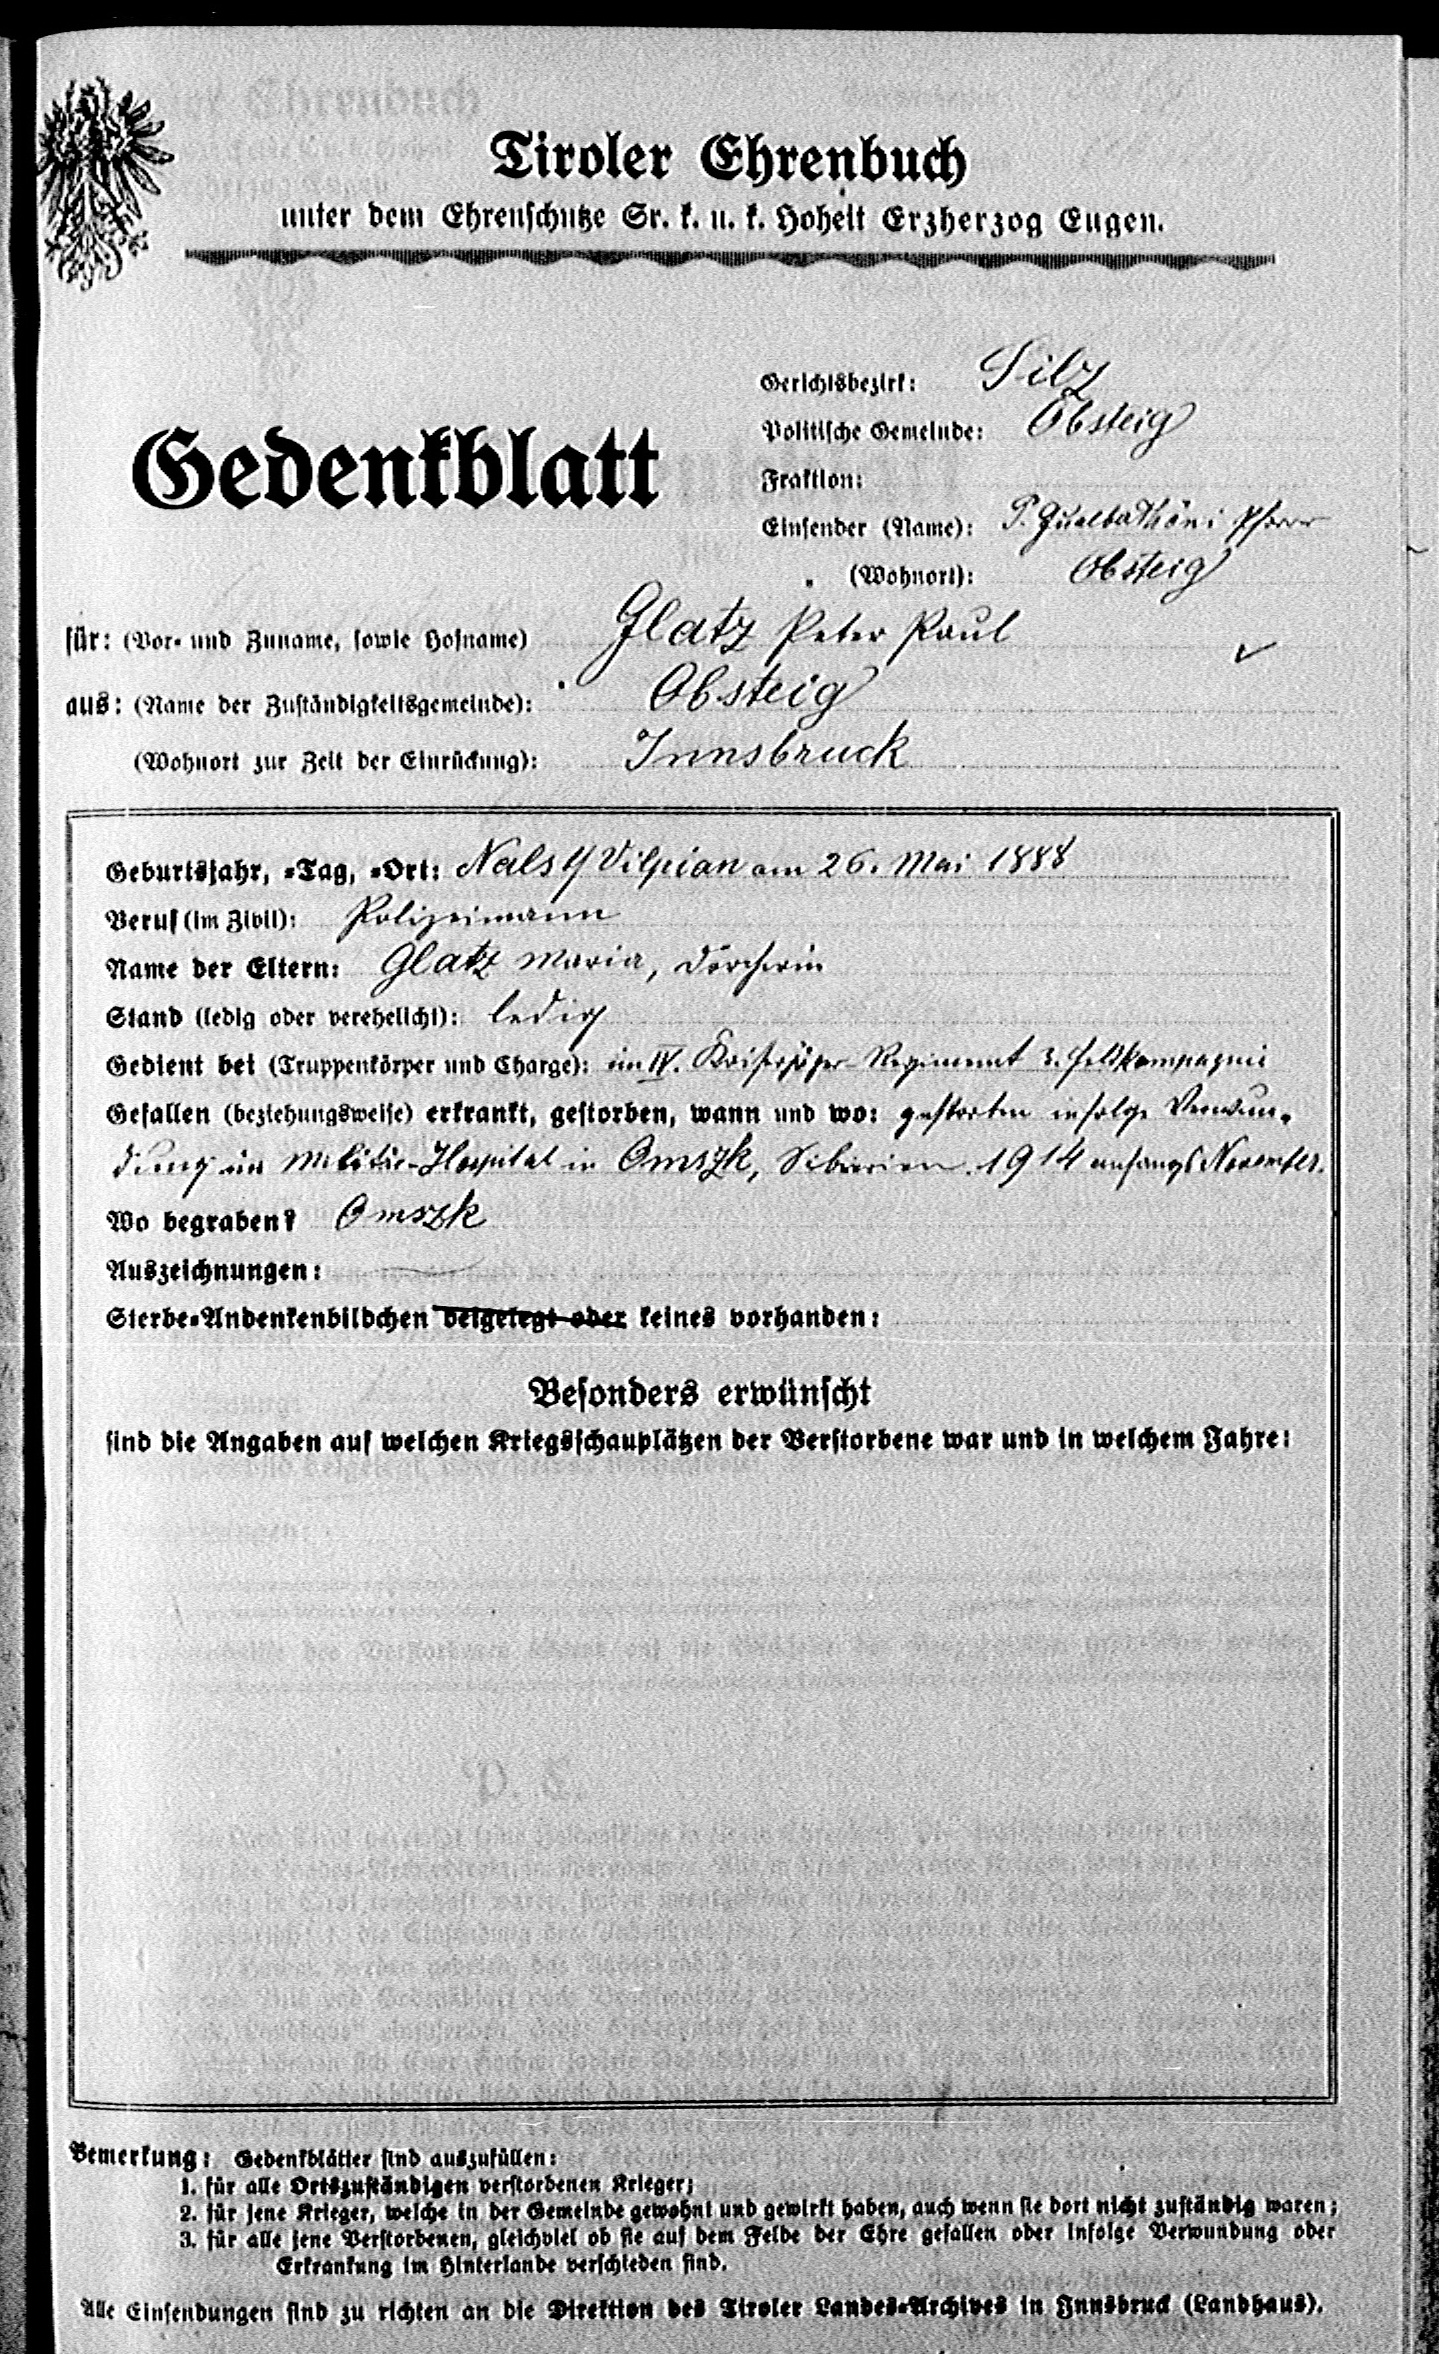 Tiroler Ehrenbuch
unter dem Ehrenschutze Sr. k. u. k. Hoheit Erzherzog Eugen.
Gerichtsbezirk: Silz
Politische Gemeinde: Obsteig
Gedenkblatt
Fraktion:
Einsender (Name): P. Thöni Pfarrer
" (Wohnort): Obsteig
für: (Vor- und Zuname, sowie Hofname) Glatz Peter Paul
aus: (Name der Zuständigkeitsgemeinde): Obsteig
(Wohnort zur Zeit der Einrückung): Innsbruck
Geburtsjahr, -Tag, -Ort: Nals Vilpian am 26. Mai 1888
Beruf (im Zivil): Polizeimann
Name der Eltern: Glatz Maria, Dörcherin
Stand (ledig oder verehelicht): ledig
Gedient bei (Truppenkörper und Charge): im IV. Kaiserjäger-Regiment 3. Feldkompagnie
Gefallen (beziehungsweise) erkrankt, gestorben, wann und wo: gestorben infolge Verwun-
dung im Militär-Hospital in Omszk, Sibirien. 1914 anfangs November.
Wo begraben? Omszk
Auszeichnungen: —
Sterbe-Andenkenbildchen beigelegt oder keines vorhanden:
Besonders erwünscht
sind die Angaben auf welchen Kriegsschauplätzen der Verstorbene war und in welchem Jahre:
Bemerkung: Gedenkblätter sind auszufüllen:
1. für alle Ortszuständigen verstorbenen Krieger;
2. für jene Krieger, welche in der Gemeinde gewohnt und gewirkt haben, auch wenn sie dort nicht zuständig waren;
3. für alle jene Verstorbenen, gleichviel ob sie auf dem Felde der Ehre gefallen oder infolge Verwundung oder
Erkrankung im Hinterlande verschieden sind.
Alle Einsendungen sind zu richten an die Direktion des Tiroler Landes-Archives in Innsbruck (Landhaus).